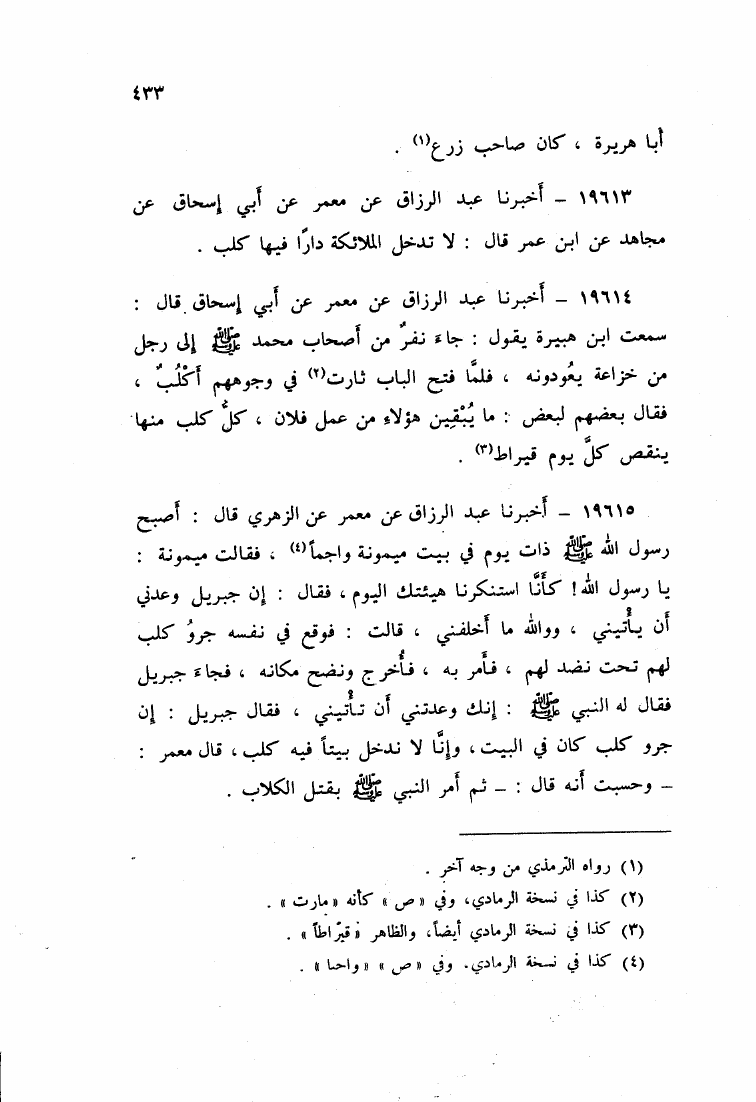 ٤٣٣
أبا هريرة ، كان صاحب زرع(١) .
١٩٦١٣ – أخبرنا عبد الرزاق عن معمر عن أبي إسحاق عن
مجاهد عن ابن عمر قال : لا تدخل الملائكة دارًا فيها كلب .
١٩٦١٤ – أخبرنا عبد الرزاق عن معمر عن أبي إسحاق قال :
سمعت ابن هبيرة يقول : جاءَ نفرٌ من أصحاب محمد ﷺ إلى رجل
من خزاعة يعُودونه ، فلمَّا فتح الباب ثارت(٢) في وجوههم أَكْلُبٌ ،
فقال بعضهم لبعض : ما يُبْقِين هؤلاءِ من عمل فلان ، كلُّ كلب منها
ينقص كلَّ يوم قيراط(٣) .
١٩٦١٥ – أخبرنا عبد الرزاق عن معمر عن الزهري قال : أصبح
رسول الله ﷺ ذات يوم في بيت ميمونة واجماً(٤) ، فقالت ميمونة :
يا رسول الله! كأنَّا استنكرنا هيئتك اليوم ، فقال : إن جبريل وعدني
أن يأْتيني ، ووالله ما أخلفني ، قالت : فوقع في نفسه جروُ كلب
لهم تحت نضد لهم ، فأمر به ، فأُخرج ونضح مكانه ، فجاءَ جبريل
فقال له النبي ﷺ : إنك وعدتني أن تأْتيني ، فقال جبريل : إن
جرو كلب كان في البيت ، وإنَّا لا ندخل بيتاً فيه كلب ، قال معمر :
– وحسبت أنه قال : – ثم أمر النبي ﷺ بقتل الكلاب .
(١) رواه الترمذي من وجه آخر .
(٢) كذا في نسخة الرمادي، وفي « ص » كأنه « مارت » .
(٣) كذا في نسخة الرمادي أيضاً، والظاهر « قيراطاً » .
(٤) كذا في نسخة الرمادي. وفي « ص » « واحنا » .